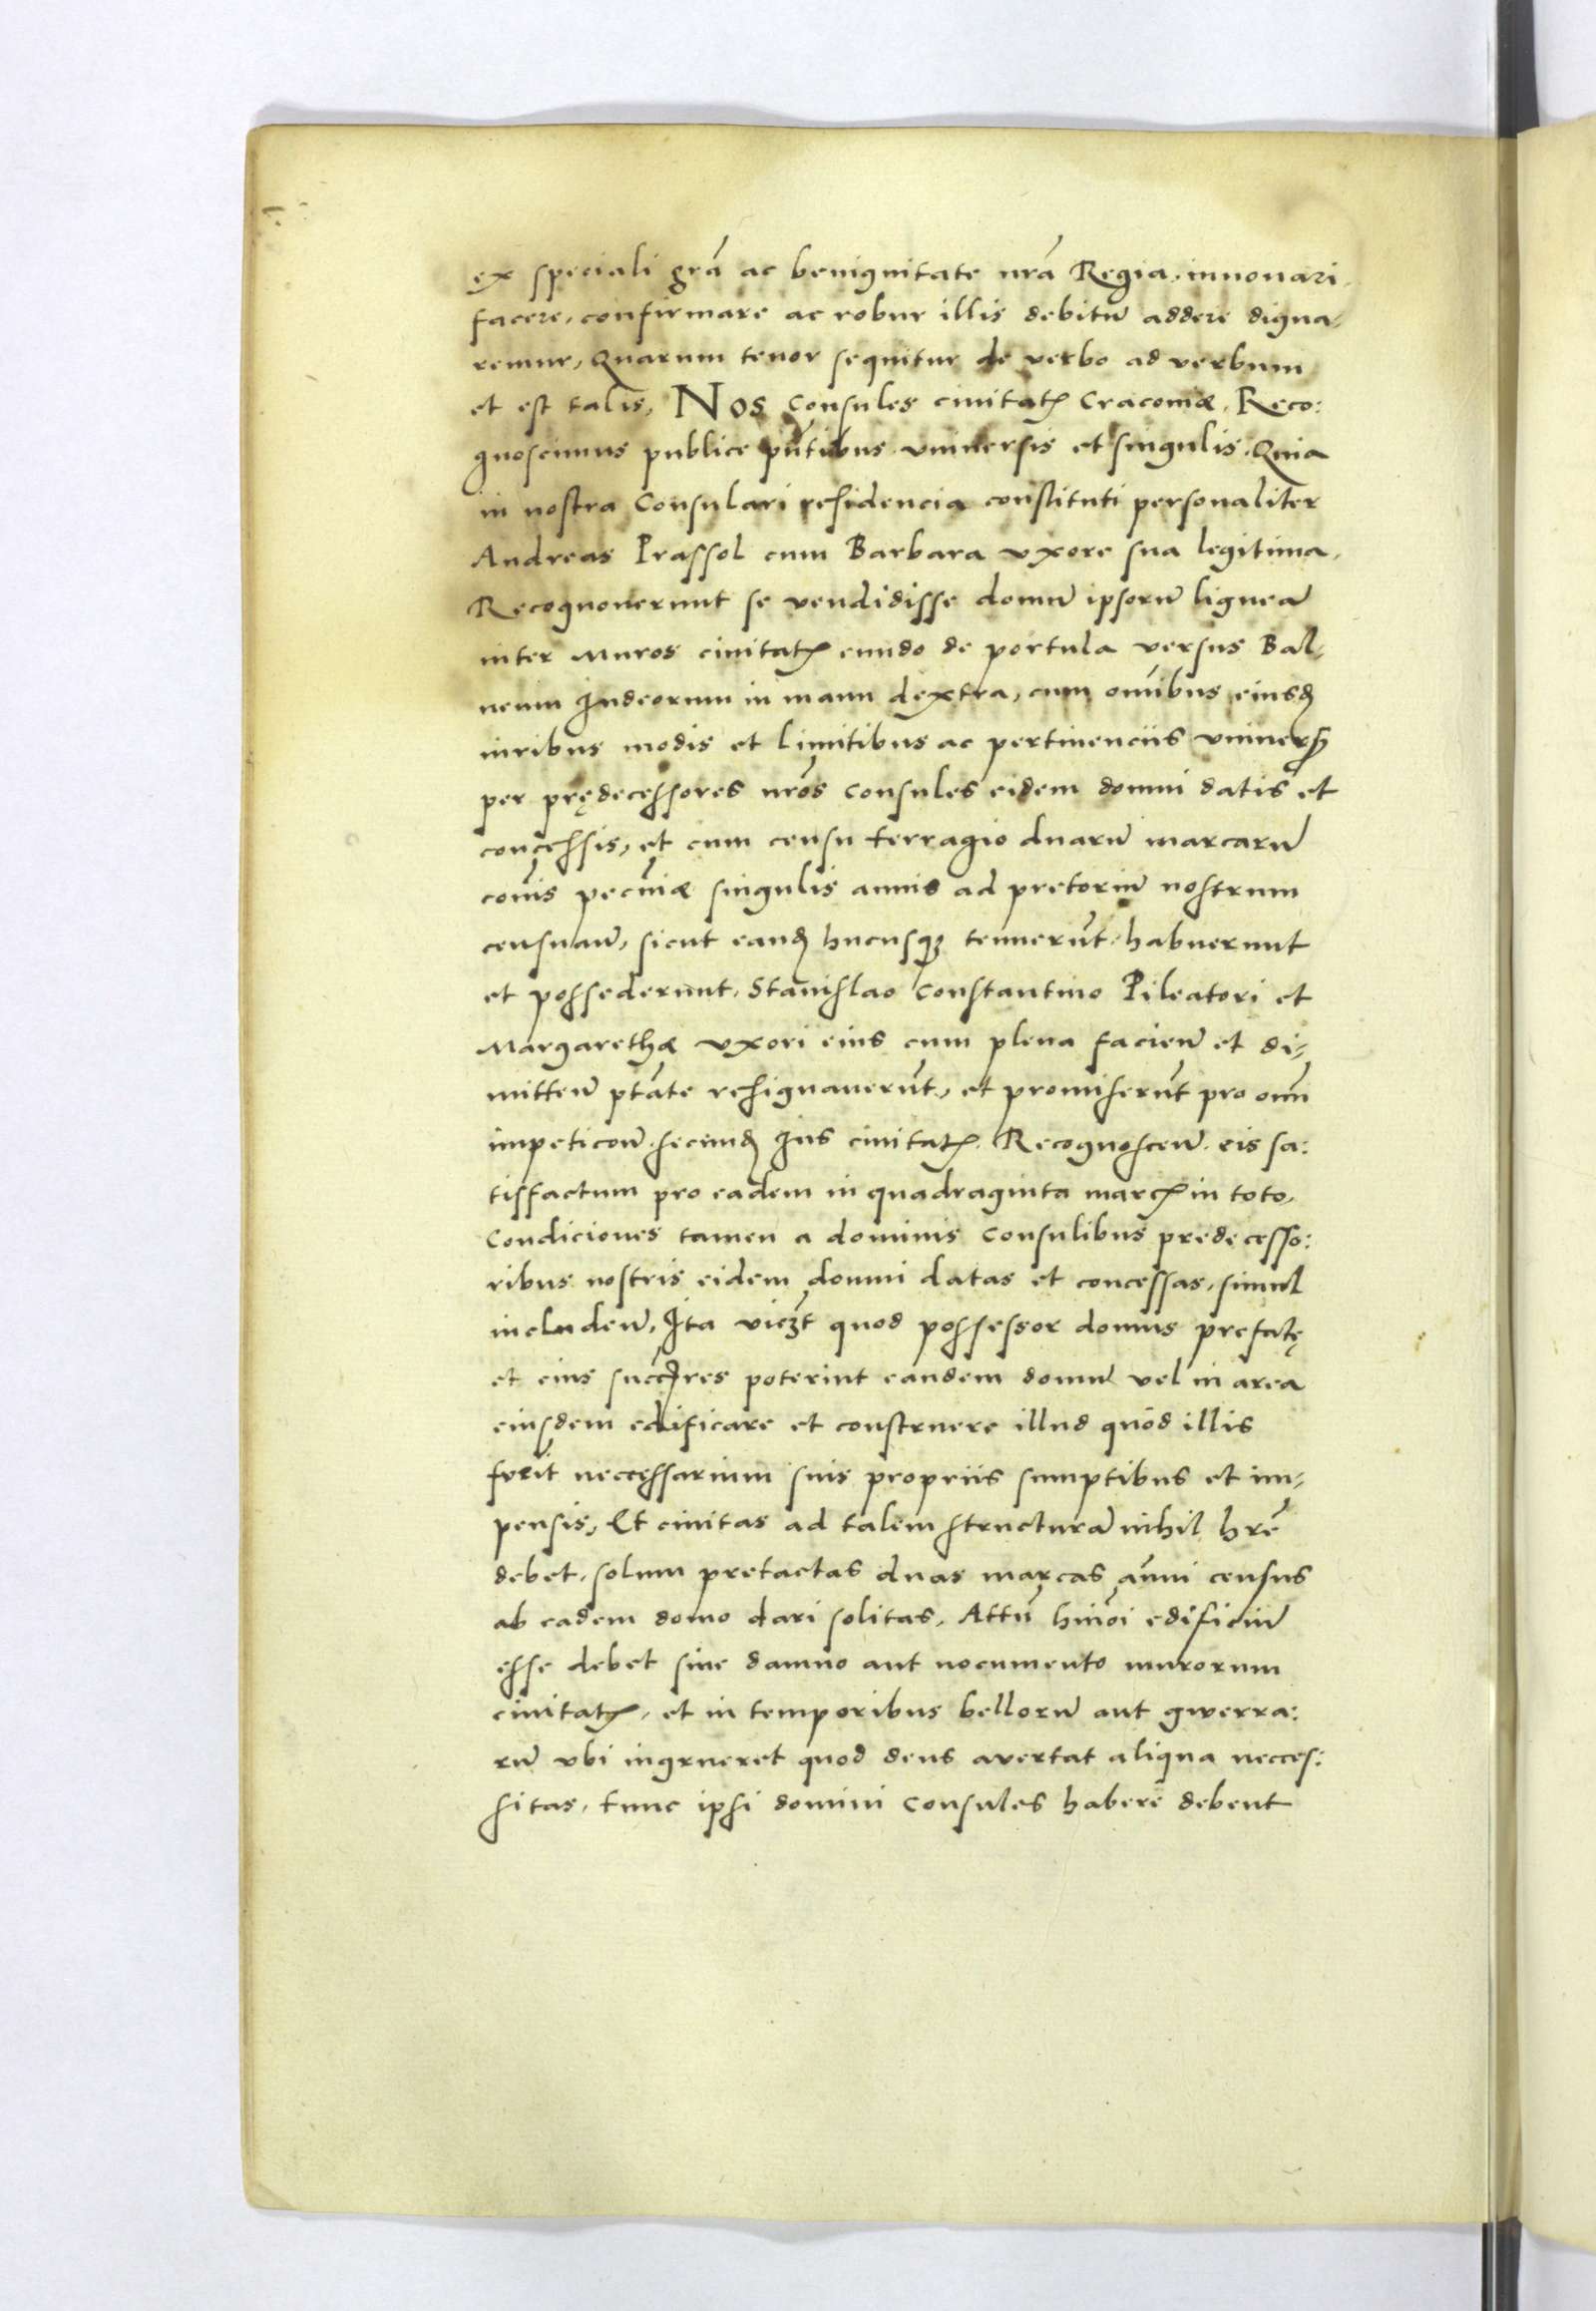 ex speciali grã ac benignitate nrã Regia, innovari,
facere, confirmare ac robur illis debitũ addere digna-
remur, Quarum tenor sequitur de verbo ad verbum
et est talis, Nos Consules civitatꝭ Cracoviæ, Reco:
gnoscimus publice pñtibus vniversis et singulis, Quia
in nostra Consulari residencia constituti personaliter
Andreas Prassol cum Barbara vxore sua legitima,
Recognoverunt se vendidisse domũ ipsorũ ligneã
inter Muros civitatꝭ eundo de portula versus Bal-
neum Iudeorum in manu dextra, cum oĩbus eiusđ
iuribus modis et limitibus ac pertinenciis vniversꝭ
per prędecessores nrõs Consules eidem domui datis et
concessis, et cum censu terragio duarũ marcarũ
coĩs pecuĩæ singulis annis ad pretoriũ nostrum
censuañ, sicut eanđ hucusqꝫ tenuerũt, habuerunt
et possederunt, Stanislao Constantino Pileatori et
Margarethæ vxori eius cum plena facieñ et di-
mitteñ ptãte resignaverũt, et promiserũt pro oĩm
impeticoñ secunđ Ius civitatꝭ. Recognosceñ eis sa:
tisfactum pro eadem in quadraginta marcꝭ in toto,
Condiciones tamen a dominis Consulibus predecesso:
ribus nostris eidem domui datas et concessas, simul
includeñ, Ita vicꝫt quod possessor domus prefatę
et eius succ̃res poterint eandem domũ vel in area
eiusdem edificare et construere illud quod illis
fuerit neccessarium suis propriis sumptibus et im-
pensis, Et civitas ad talem structurã nihil hrẽ
debet, solum pretactas duas marcas añui census
ab eadem domo dari solitas, Attñ hmõi edificiũ
esse debet sine damno aut nocumento murorum
civitatꝭ, et in temporibus bellorũ aut gwerra:
rũ vbi ingrueret quod deus avertat aliqua necces:
sitas, tunc ipsi domini Consules habere debent